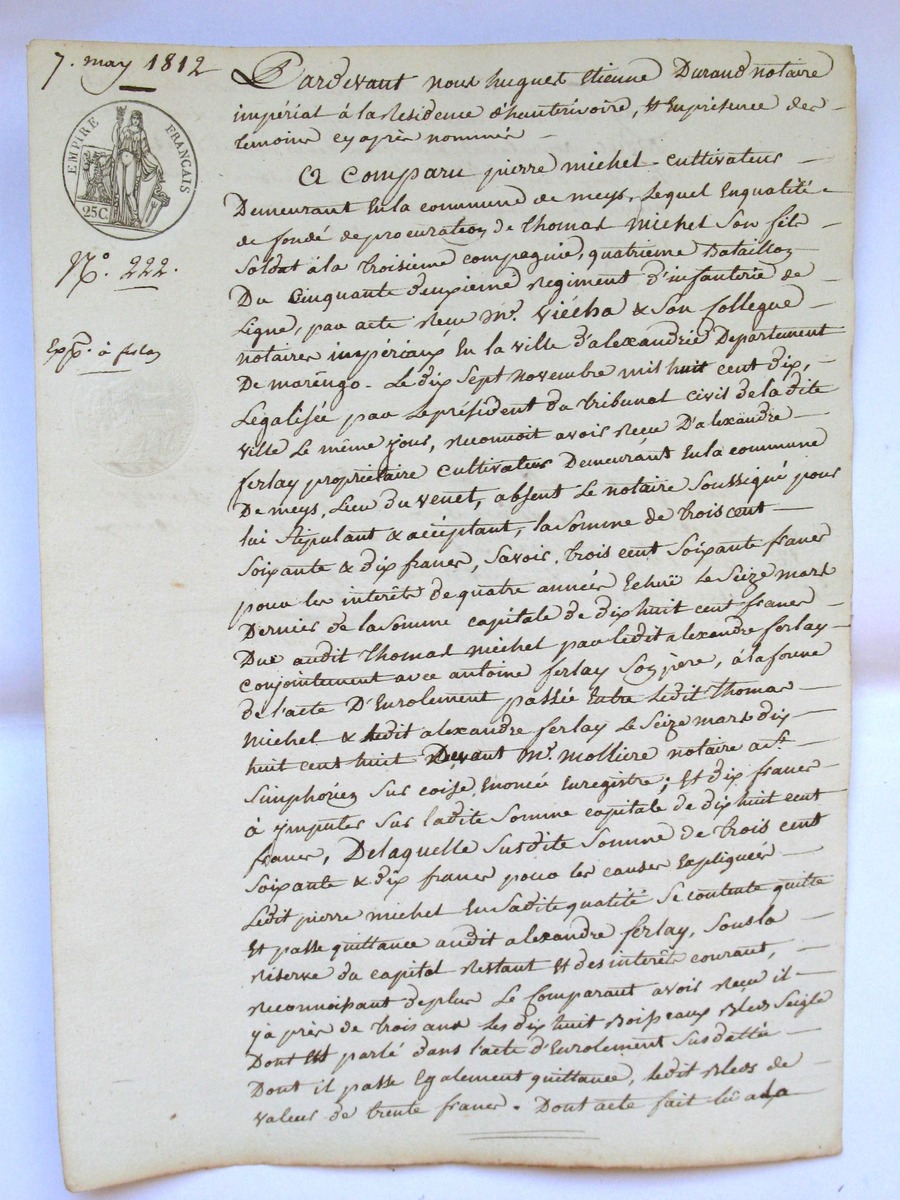 7. may 1812
EMPIRE FRANÇAIS
25C.
N.° 222.
à ferlay
Pardevant nous huguet Etienne Durand notaire
impérial à la Residence d'hauterivoire, Et Enpresence des
temoins cy après nommés
A Comparu pierre michel cultivateur
Demeurant En la commune de meys, Lequel Enqualité
de fondé deprocuration de thomas Michel Son fils
Soldat à la troisieme compagnie, quatrieme Bataillon
Du Cinquante deuxieme regiment d'infanterie de
Ligne, par acte reçu Mr. Viécha & Son Collegue
notaires impériaux En la ville d'alexandrie Departement
De marengo. Le dix Sept novembre mil huit cent dix,
Légalisée par Le président du tribunal civil de la dite
ville Le même jour, reconnoit avoir reçu D'alexandre
ferlay propriétaire cultivateur Demeurant Enla commune
De meys, Lieu du venet, absent Le notaire Soussigné pour
lui Stipulant & acceptant, la Somme de trois cent
Soixante & dix francs, Savoir, trois cent Soixante francs
pour les interêts de quatre années Echuë Le Seize mars
Dernier de la Somme capitale de dix huit cent francs
Due audit thomas michel par ledit alexandre ferlay
conjointement avec antoine ferlay Son pere, à la forme
de l'acte D'Enrolement passée Entre Ledit thomas
Michel & ledit alexandre ferlay Le Seize mars dix
huit cent huit Devant Mr. Molliere notaire a St.
Simphorien Sur coise, Enoncé Enregistre; Et dix francs
à ymputer Sur ladite Somme capitale de dix huit cent
francs, Delaquelle Susdite Somme de trois cent
Soixante & dix francs pour les causes Expliquées
Ledit pierre michel En Sadite qualité Se contente quitte
Et passe quittance audit alexandre ferlay, Sous la
réserve du capital Restant Et des interêts courant,
reconnoissant deplus Le Comparant avoir reçu il
y a près de trois ans Les dix huit Boisseaux Bleds Seigle
Dont Est parlé dans l'acte d'Enrolement Susdatté
Dont il passe Egalement quittance, ledit Bleds de
valeur de trente francs. Dont acte fait lû a